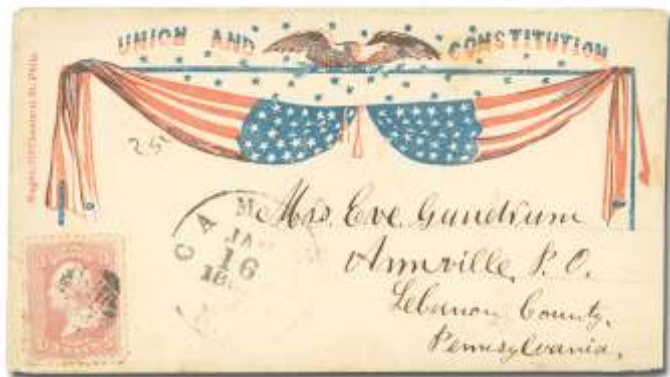 UNION AND CONSTITUTION
Magee, 316 Chestnut St. Phila.
Mrs. Eve Gundrum
Annville, P. O.
Lebanon County,
Pennsylvania,
CA M
JA
16
18